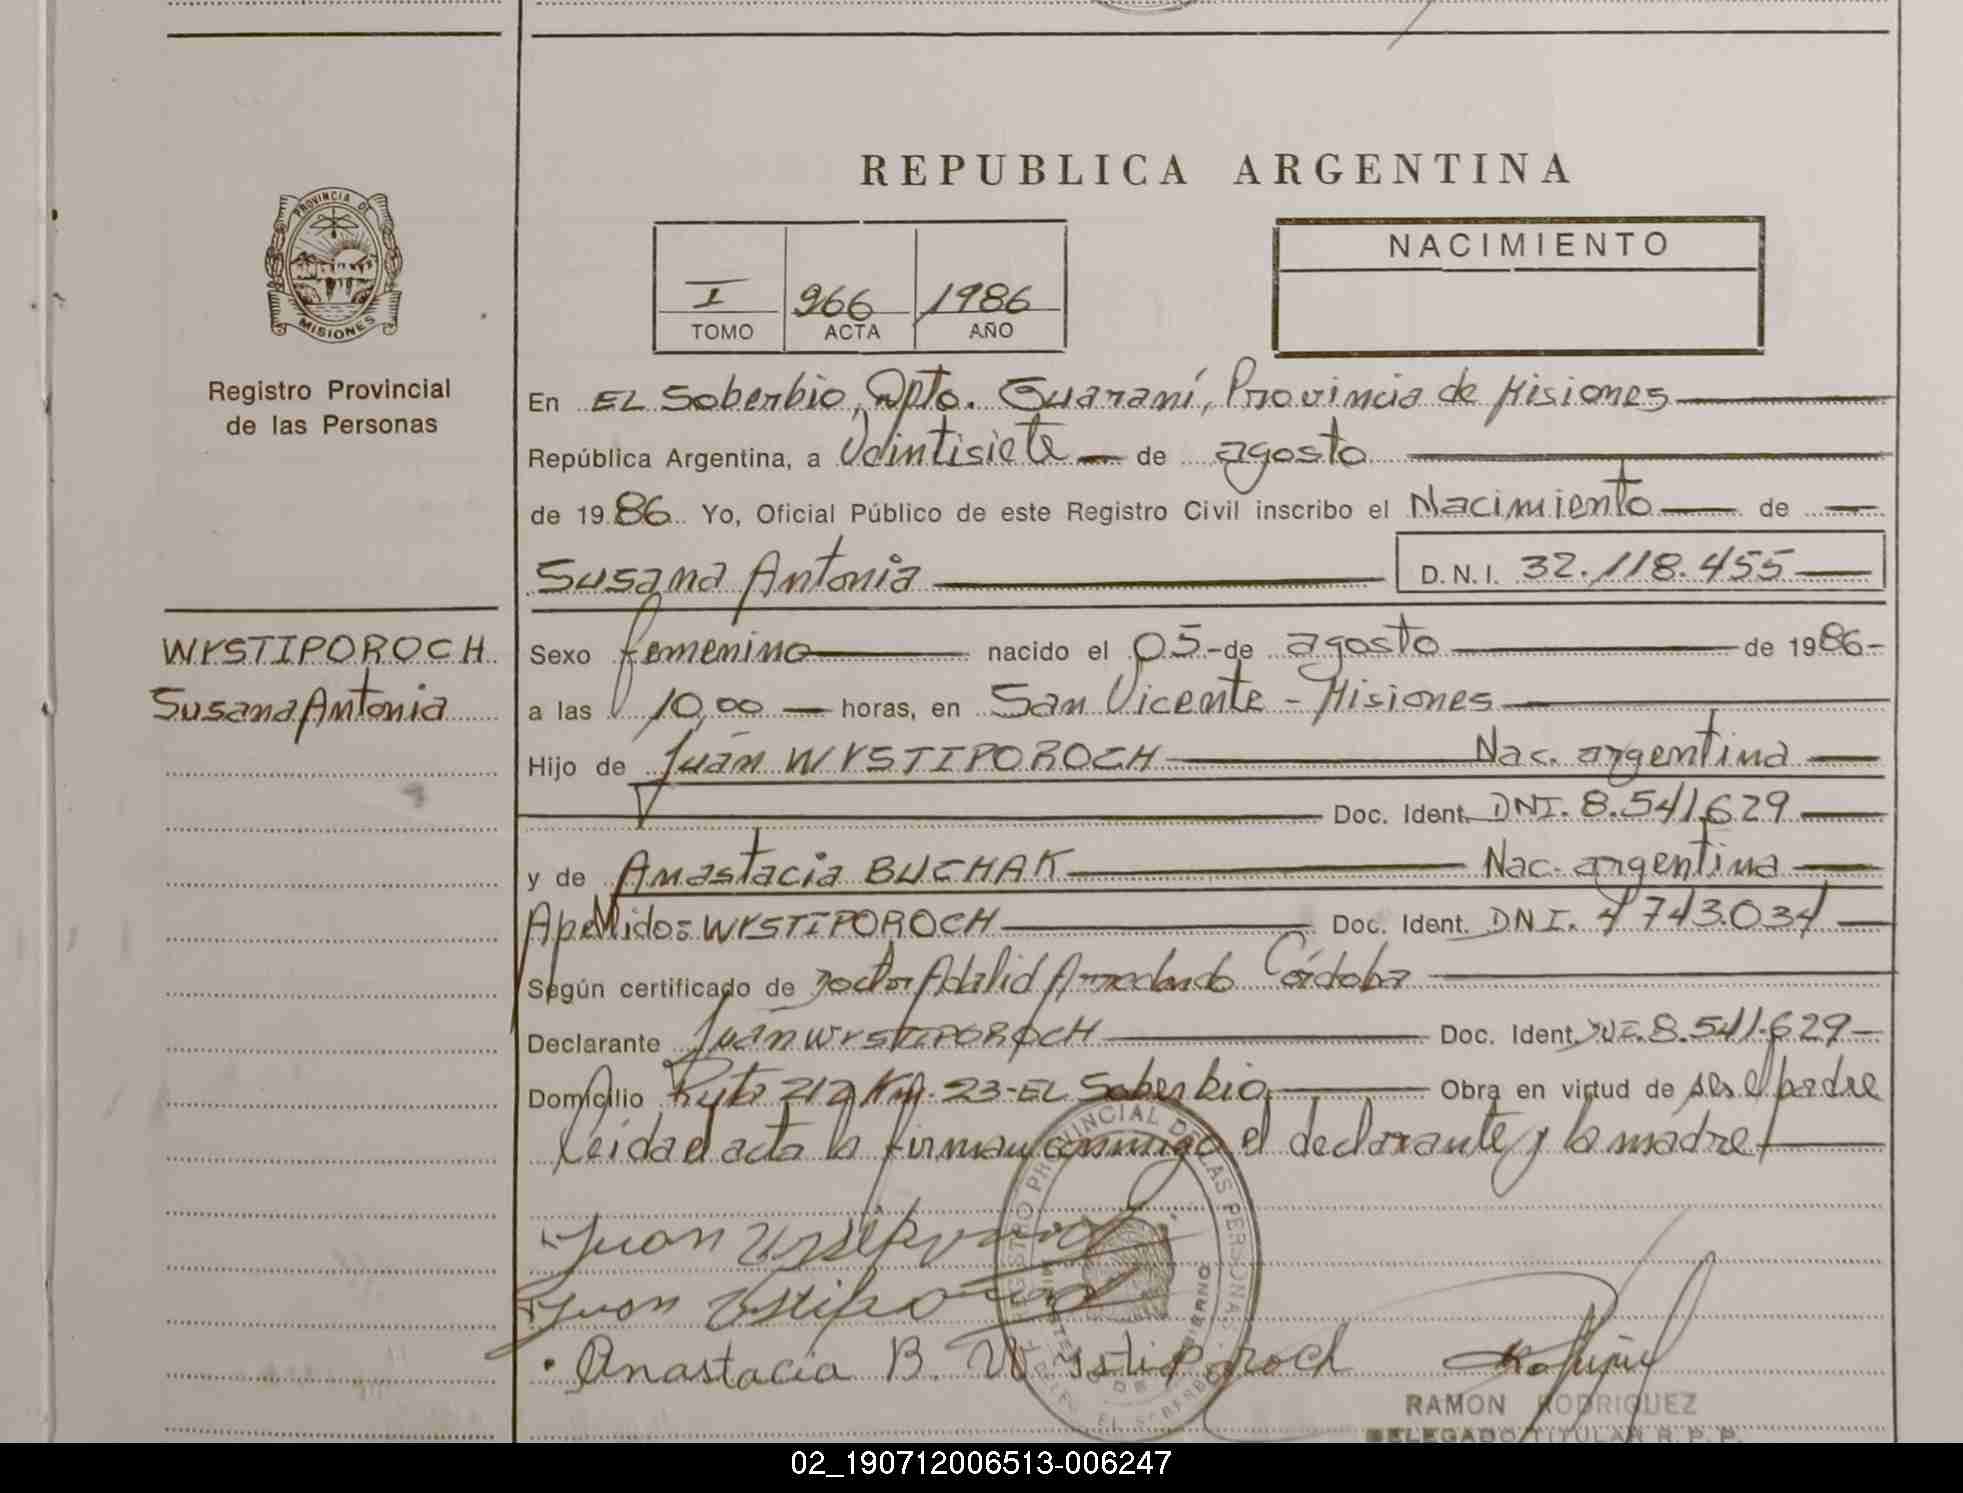 REPUBLICA ARGENTINA
PROVINCIA DE
MISIONES
Registro Provincial
de las Personas
I 966 1986
TOMO ACTA AÑO
NACIMIENTO
En EL Soberbio, Dpto. Guaraní, Provincia de Misiones
República Argentina, a Veintisiete de agosto
de 1986 Yo, Oficial Público de este Registro Civil inscribo el Nacimiento de
Susana Antonia D.N.I. 32.118.455
WYSTIPOROCH
Susana Antonia
Sexo femenino nacido el 05-de agosto de 1986-
a las 10,00 horas, en San Vicente - Misiones
Hijo de Juan WYSTIPOROCH Nac. argentina
Doc. Ident. DNI. 8.541.629
y de Anastacia BUCHAK Nac. argentina
Apellido: WYSTIPOROCH Doc. Ident. DNI. 4.743.034
Según certificado de Doctor Adalid Arredondo Córdoba
Declarante Juan WYSTIPOROCH Doc. Ident. DNI. 8.541.629-
Domicilio Ruta 212 Km. 23-EL Soberbio Obra en virtud de ser el padre
Leida el acta la firman conmigo el declarante y la madre
REGISTRO PROVINCIAL DE LAS PERSONAS
Juan
Juan
Anastacia B. Wystiporoch
RAMON RODRIGUEZ
DELEGADO TITULAR R. P. P.
02_190712006513-006247